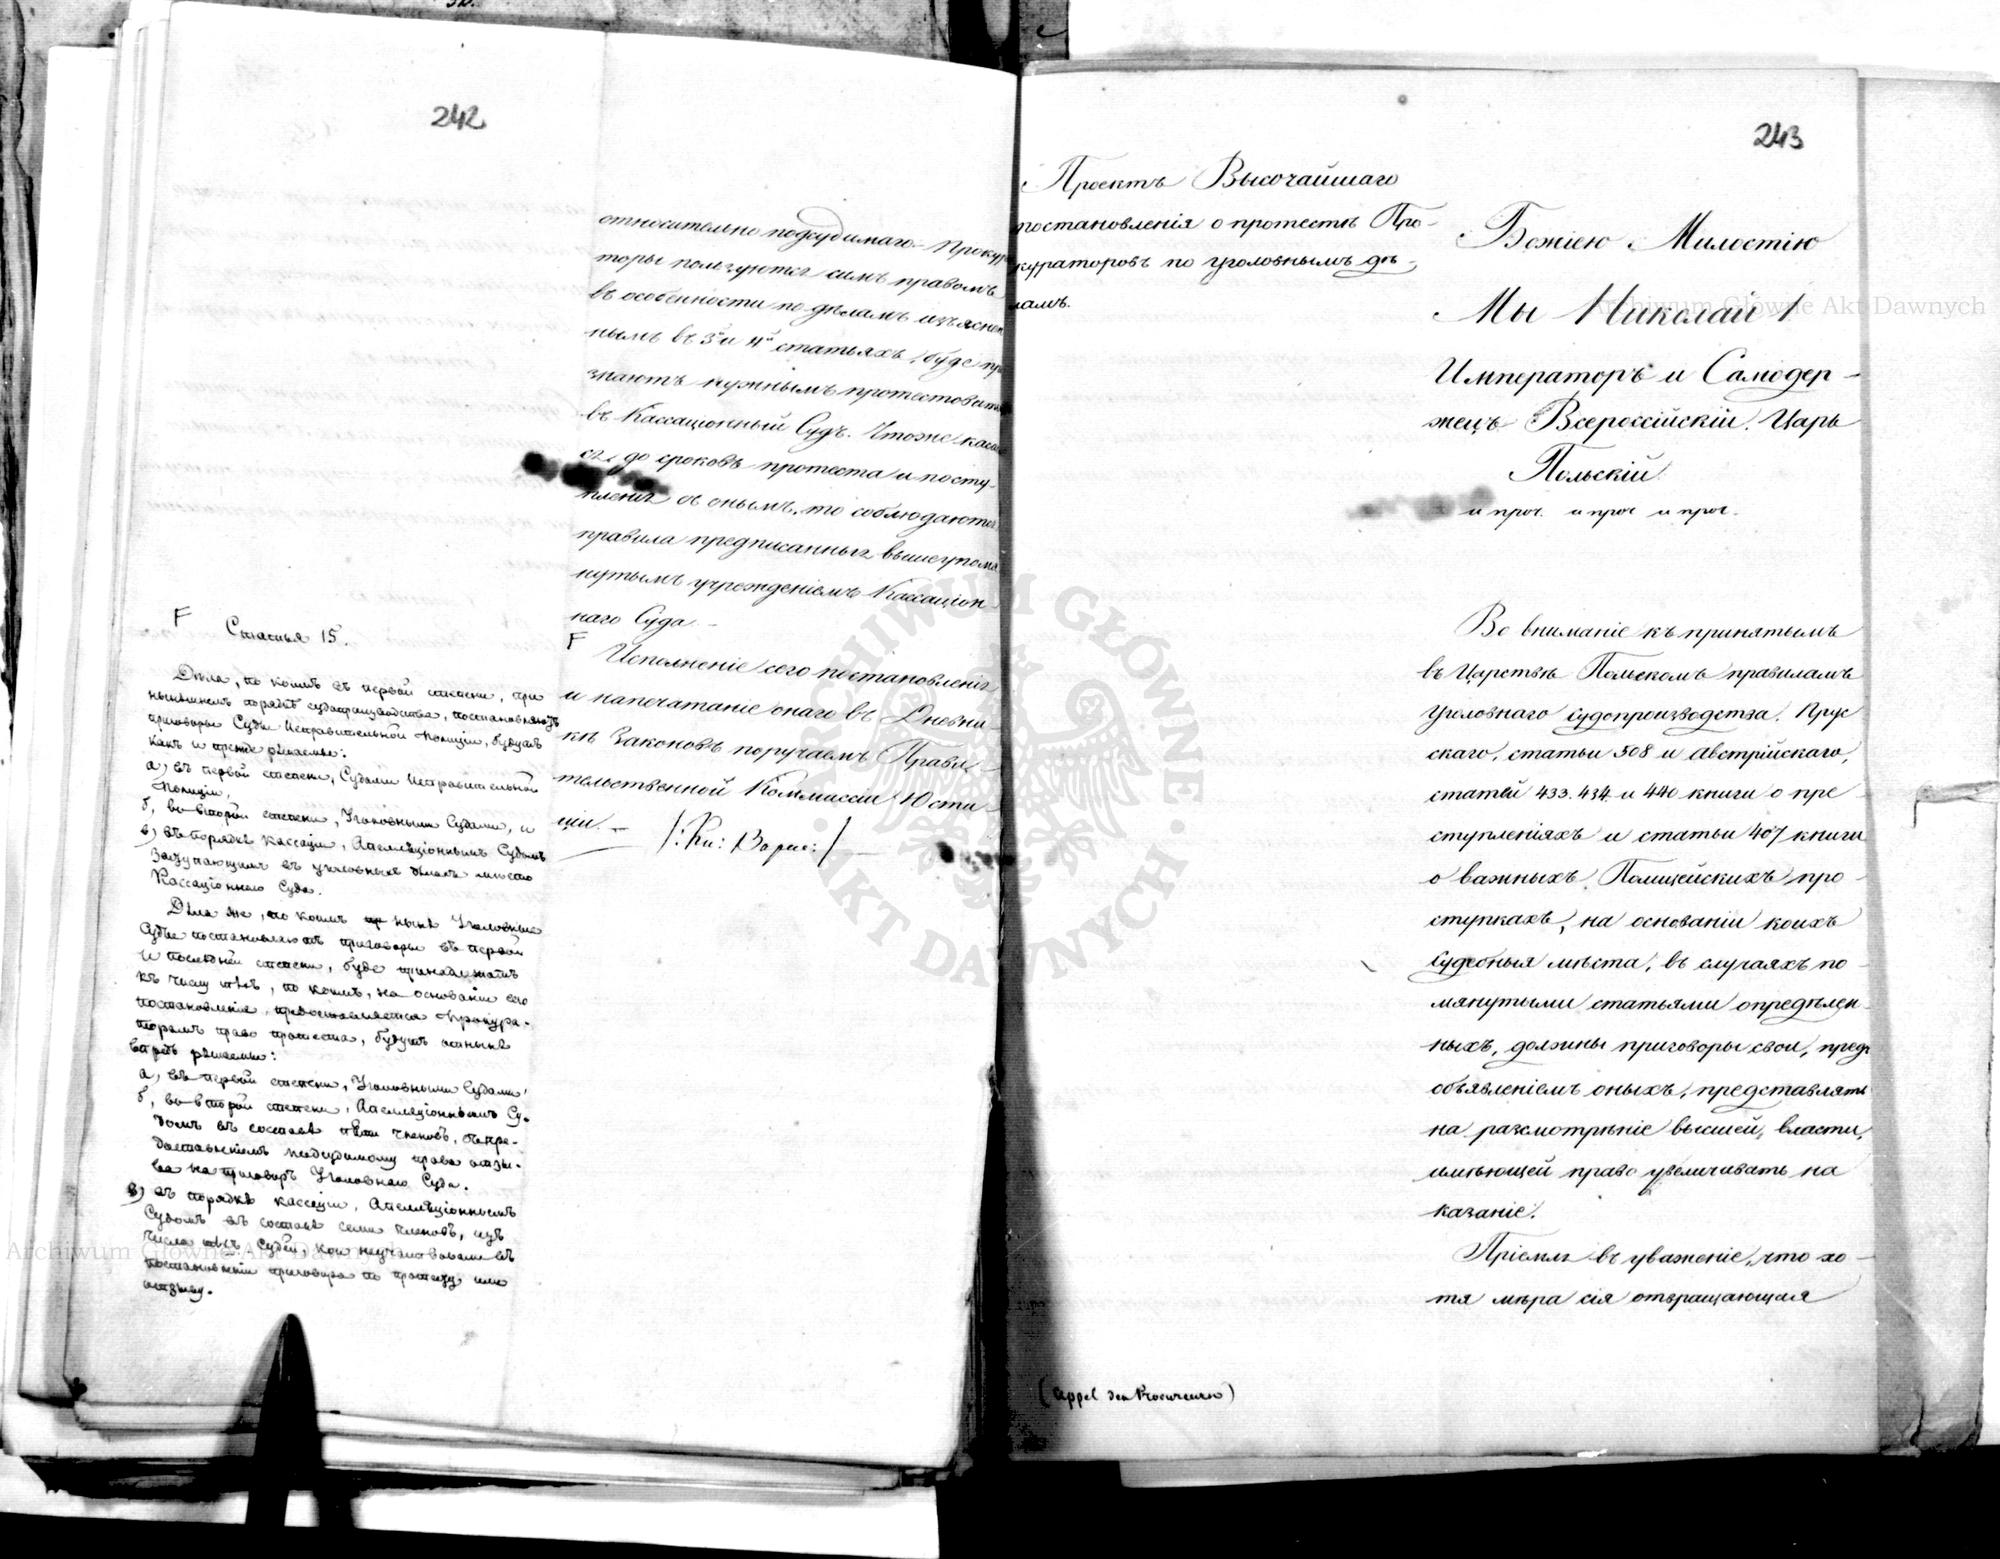 242
относительно подсудимаго. Прокура
торы пользуются симъ правомъ
въ особенности по дѣламъ изъяснен
нымъ въ 3й и 4й статьяхъ, буде при
знаютъ нужнымъ протестовать
въ Кассаціонный Судъ. Чтоже касает
ся до сроковъ протеста и посту-
пленія съ онымъ, то соблюдаются
правила предписанныя вышеупомя
нутымъ учрежденіемъ Кассаціон-
наго Суда. –
F Исполненіе сего постановленія
и напечатаніе онаго въ Дневни-
кѣ Законовъ поручаемъ Прави-
тельственной Коммиссіи Юсти-
ціи. –
/: Кн: Варш: /
F
Статья 15.
Дѣла, по коимъ въ первой степени, при
нынѣшнемъ порядкѣ судопроизводства, постановляютъ
приговоры Суды Исправительной Полиціи, будутъ
какъ и прежде рѣшаемы:
а) въ первой степени, Судами Исправительной
Полиціи,
б, во второй степени, Уголовными Судами, и
в) въ порядкѣ кассаціи, Апелляціоннымъ Судомъ
Заступающимъ въ уголовныхъ дѣлахъ мѣсто
Кассаціоннаго Суда.
Дѣла же, по коимъ нынѣ Уголовные
Суды постановляютъ приговоры въ первой
и послѣдней степени, буде принадлежатъ
къ числу тѣхъ, по коимъ, на основаніи сего
постановленія, предоставляется Прокура-
торамъ право протеста, будутъ отнынѣ
впредь рѣшаемы:
а, въ первой степени, Уголовными Судами,
б, во второй степени, Апелляціоннымъ Су-
домъ въ составѣ пяти членовъ, съ пре-
доставленіемъ подсудимому права отзы-
ва на приговоръ Уголовнаго Суда.
в) въ порядкѣ кассаціи, Апелляціоннымъ
Судомъ въ составѣ семи членовъ, изъ
числа тѣхъ Судей, кои неучаствовали въ
постановленіи приговора по протесту или
отзыву.
243
Проектъ Высочайшаго
постановленія о протестѣ Про-
кураторовъ по уголовнымъ дѣ-
ламъ.
Божіею Милостію
Мы Николай I
Императоръ и Самодер-
жецъ Всероссійскій. Царь
Польскій
и проч. и проч и проч.
Во вниманіе къ принятымъ
въ Царствѣ Польскомъ правиламъ
уголовнаго судопроизводства. Прус
скаго, статьи 508 и Австрійскаго,
статей 433. 434. и 440 книги о пре-
ступленіяхъ и статьи 407 книги
о важныхъ Полицейскихъ про-
ступкахъ, на основаніи коихъ
судебныя мѣста, въ случаяхъ по-
мянутыми статьями опредѣлен-
ныхъ, должны приговоры свои, предъ
объявленіемъ оныхъ, представлять
на разсмотрѣніе высшей власти,
имѣющей право увеличивать на
казаніе.
Пріемля въ уваженіе, что хо-
тя мѣра сія отвращающая
(appel des Procureurs)
Archiwum Główne Akt Dawnych
Archiwum Główne Akt Dawnych
ARCHIWUM GŁÓWNE
AKT DAWNYCH